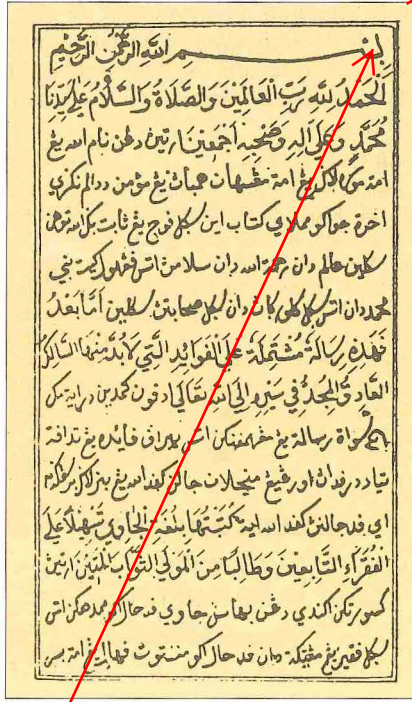 بسم الله الرحمن الرحيم
الحمد لله رب العالمين والصلاة والسلام على سيدنا
محمد وعلى آله وصحبه أجمعين ارتيڽ دڠن نام الله يڠ
امة موره لاݢي يڠ امة مڠسيهان همباڽ يڠ مؤمن ددالم نݢري
اخرة جوا كو ملاءي كتاب اين سݢل ڤوجي يڠ ثابت بݢي الله توهن
سكلين عالم دان رحمة الله دان سلامڽ اتس ڤڠهولو كيت نبي
محمد دان اتس سݢل كلوارݢاڽ دان سݢل صحابتڽ سكلين أما بعد
فهذه رسالة مشتملة على الفوائد التي لا بد منها السالك
الصادق المجد في سيره إلى الله تعالى ادڤون كمدين درايت مك
اين سوات رسالة يڠ مڠهمڤنكن اتس ببراڤ فائده يڠ تداڤت
تياد درڤداڽ اورڠ يڠ منجالان جالن كڤد الله يڠ بنر لاݢي برسوڠݢوه
اي ڤد جالنڽ كڤد الله ايت كتبتها بلغة الجاوي تسهيلا على
الفقراء التابعين وطالبا من المولى الثواب المتين ارتيڽ
كسورتكن اكندي دڠن بهاس جاوي ڤد حال اكو ممدهكن اتس
سݢل فقير يڠ مڠيكت دان ڤد حال اكو منونتوت ڤهلا يڠ امة بسر